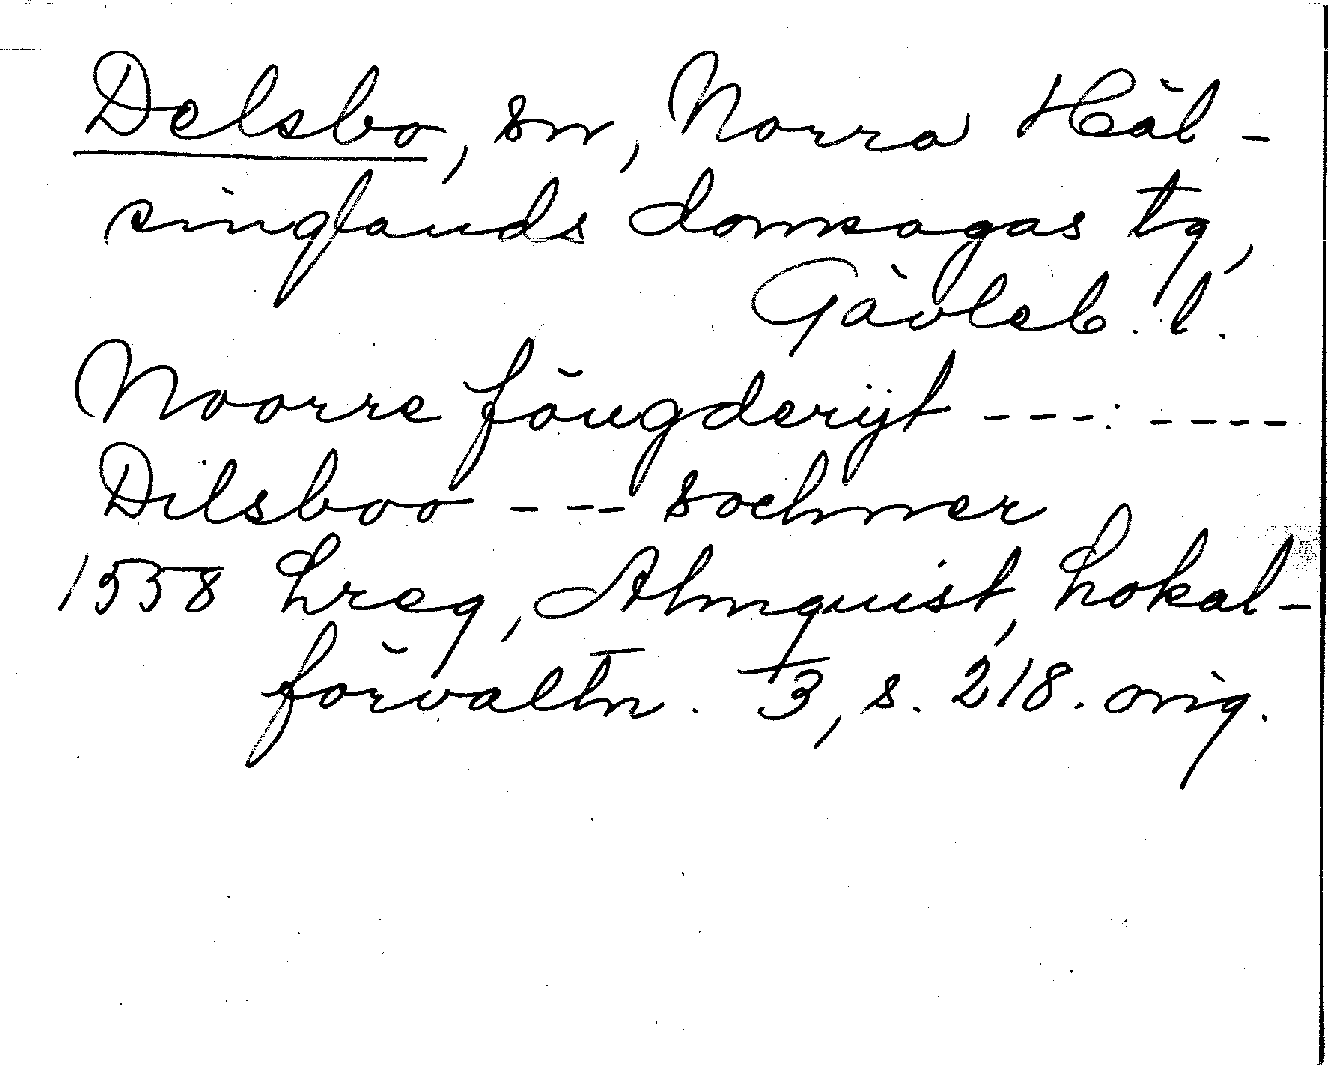 Delsbo, sn, Norra Häl-
singlands domsagas tg,
Gävleb. l.
Noorre föugderijt ---:----
Dilsboo --- sochner
1558 Lreg, Almquist, Lokal-
förvaltn. 3, s. 218. orig.